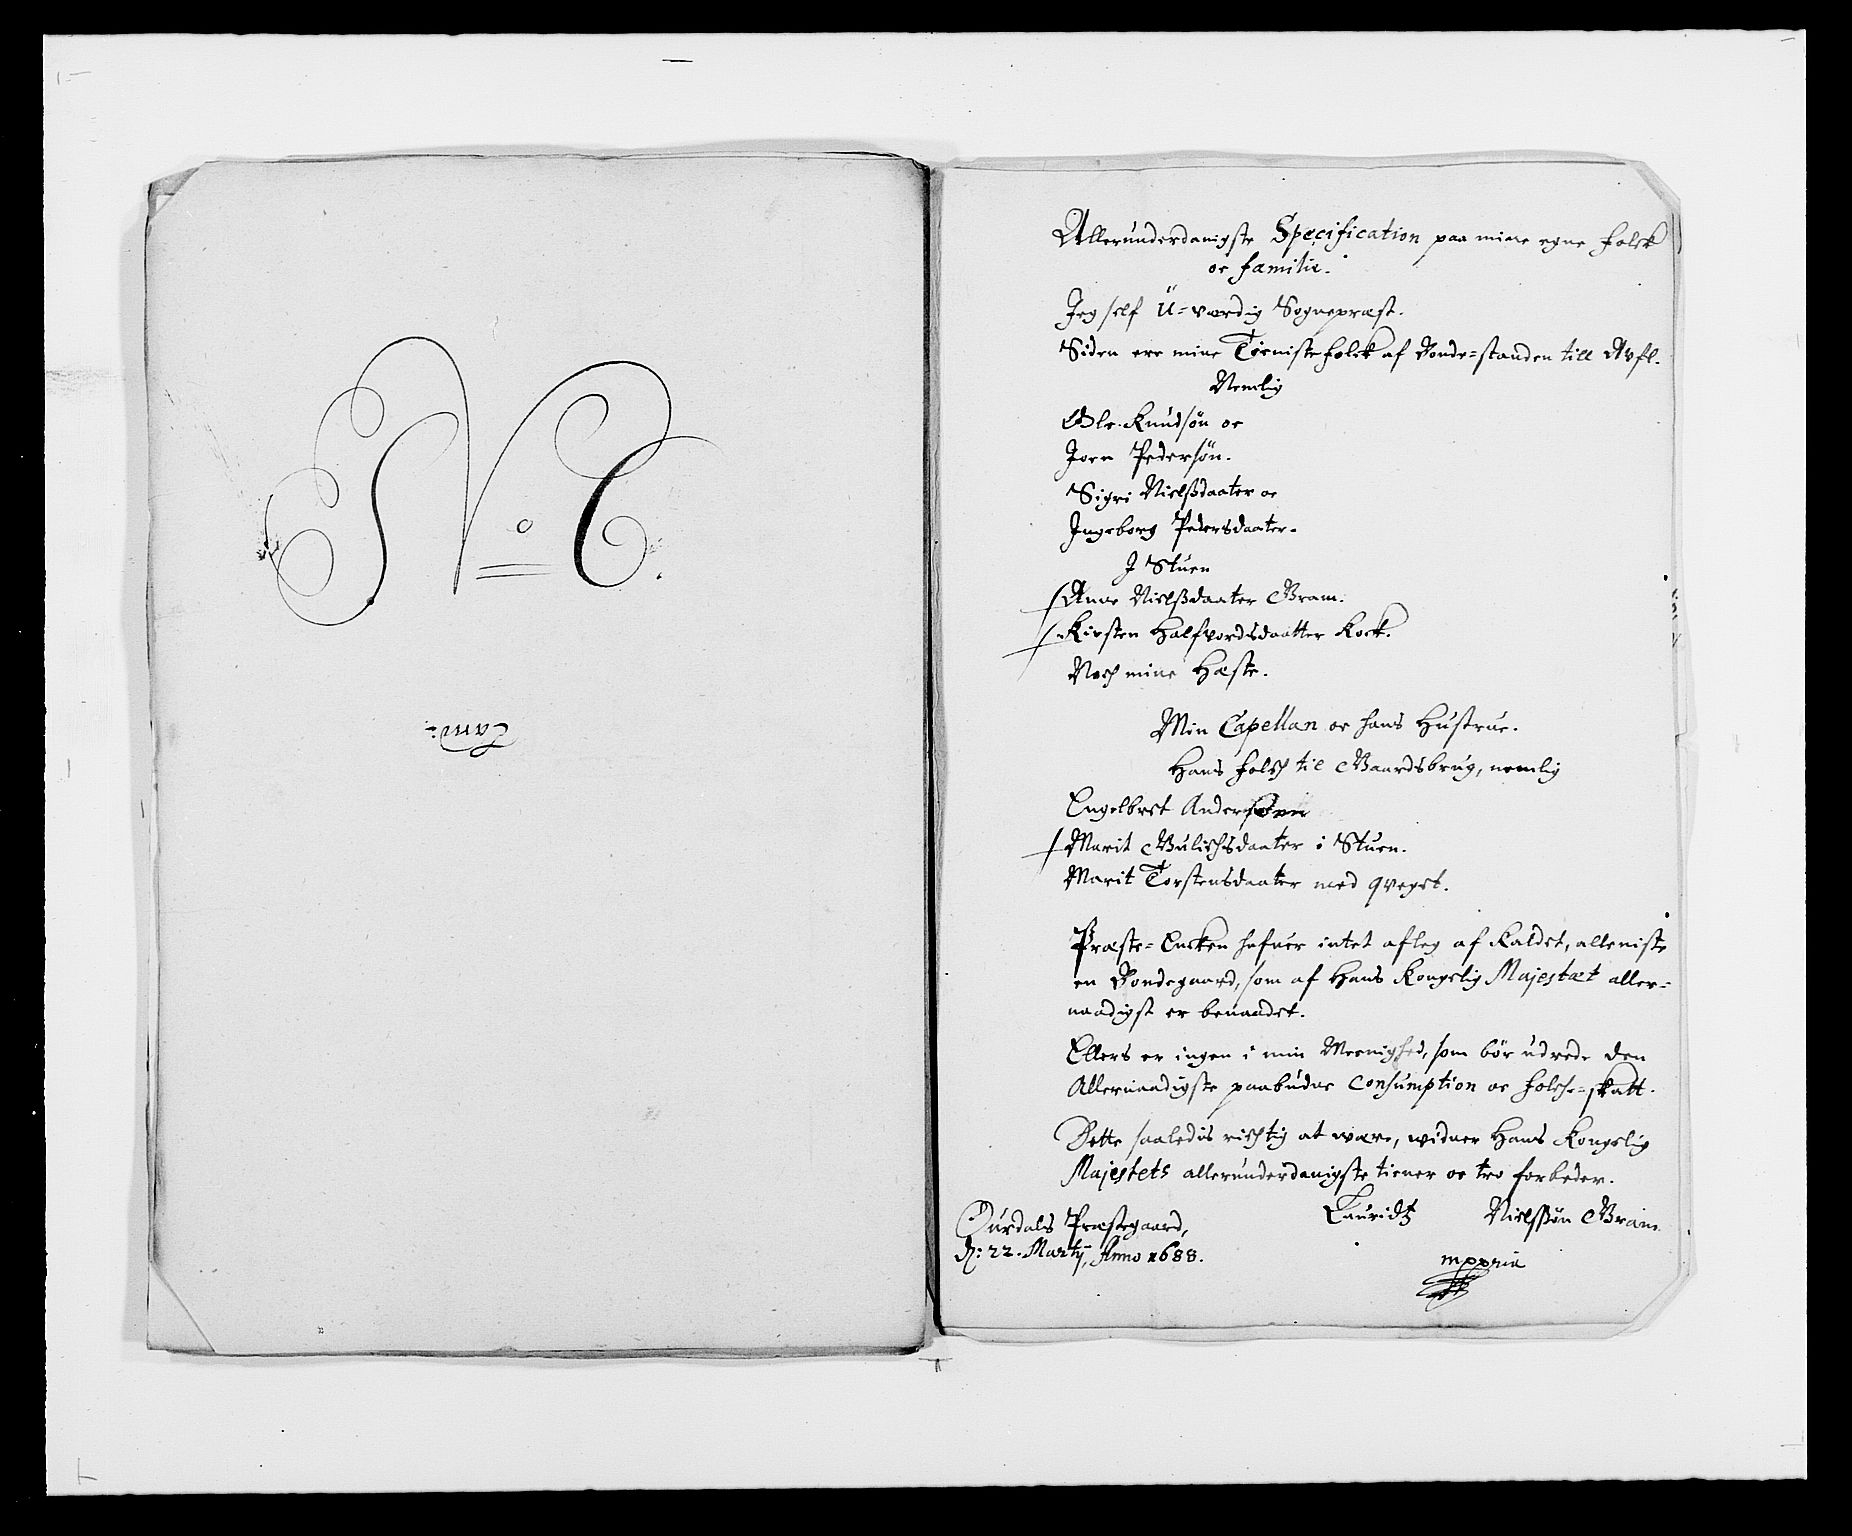 No C.
Allerunderdanigste Specification paa mine egne folck
oc familie.
Jeg self U=værdig Sognepræst.
Siden ere mine Tieniste folck af Bonde=standen till Avfl.
Nemlig
Ole Knudsøn oc
Joen Pedersøn.
Sigri Nielsdaater oc
Ingeborg Pedersdaater.
I Stuen
Anne Nielsdaater Gram.
Kirsten Halfvordsdaatter Kock.
Noch mine Hæste.
Min Capellan oc hans Hustrue.
Hans folch til Gaardsbrug, nemlig
Engelbret Andersøen
Marit Gulichsdaater i Stuen.
Marit Torstensdaater med qveget.
Præste=Encken hafuer intet afleg af Kaldet, alleniste
en Bondegaard, som af Hans Kongelig Majestæt aller=
naadigst er benaadet.
Ellers er ingen i min Meenighed, som bør udrede den
Allernaadigste paabudne Consumption oc folche=skatt.
Dette saaledis richtig at være, widner Hans Kongelig
Majestets allerunderdanigste tiener oc tro forbeder.
Laur­idtz Nielssøn Gram
mppria
Præstegaard,
d: 22. Martij, Anno 1688.